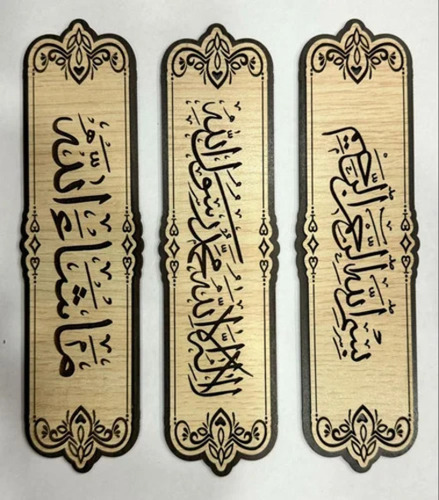 ما شاء الله
لا إله إلا الله محمد رسول الله
بسم الله الرحمن الرحيم